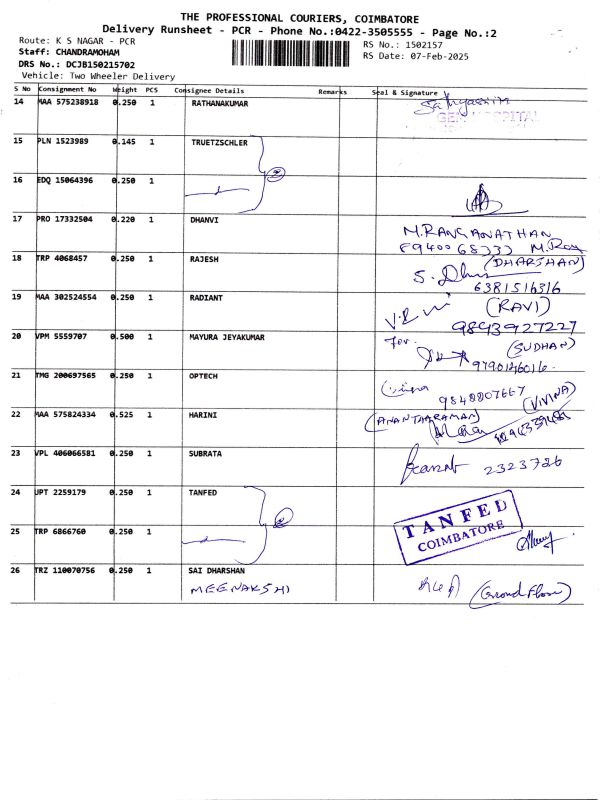 THE PROFESSIONAL COURIERS, COIMBATORE
Delivery Runsheet - PCR - Phone No.:0422-3505555 - Page No.:2
Route: K S NAGAR - PCR
RS No.: 1502157
Staff: CHANDRAMOHAM
RS Date: 07-Feb-2025
DRS No.: DCJB150215702
Vehicle: Two Wheeler Delivery
S No Consignment No Weight PCS Consignee Details Remarks Seal & Signature
14 MAA 575238918 0.250 1 RATHANAKUMAR
15 PLN 1523989 0.145 1 TRUETZSCHLER
16 EDQ 15064396 0.250 1
17 PRO 17332504 0.220 1 DHANVI M.RANGANATHAN
18 TRP 4068457 0.250 1 RAJESH (DHARSHAN)
6381516316
19 MAA 302524554 0.250 1 RADIANT (RAVI)
9843927227
20 VPM 5559707 0.500 1 MAYURA JEYAKUMAR For (SUDHAN)
21 TMG 200697565 0.250 1 OPTECH
9840807667 (VIVINA)
22 MAA 575824334 0.525 1 HARINI (ANANTHARAMAN)
23 VPL 406066581 0.250 1 SUBRATA 2323726
24 JPT 2259179 0.250 1 TANFED
TANFED
COIMBATORE
25 TRP 6866760 0.250 1
26 TRZ 110070756 0.250 1 SAI DHARSHAN
MEENAKSHI (Ground Floor)